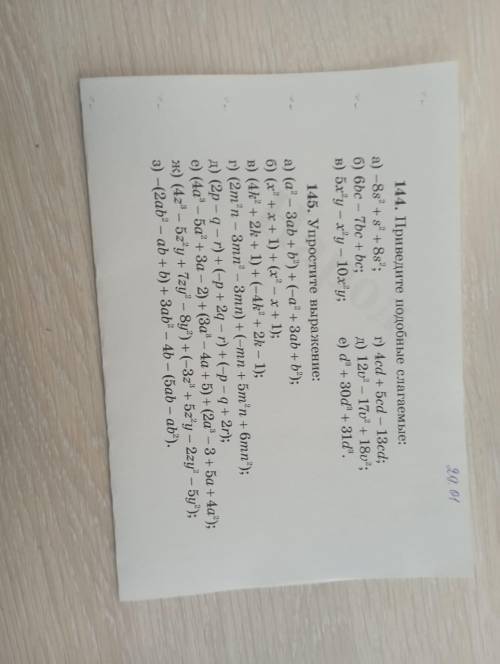 29.01
144. Приведите подобные слагаемые:
а) –8s² + s² + 8s²; г) 4cd + 5cd – 13cd;
б) 6bc – 7bc + bc; д) 12v² – 17v² + 18v²;
в) 5x²y – x²y – 10x²y; е) d³ + 30d³ + 31d³.
145. Упростите выражение:
а) (a² – 3ab + b²) + (–a² + 3ab + b²);
б) (x² + x + 1) + (x² – x + 1);
в) (4k² + 2k + 1) + (–4k² + 2k – 1);
г) (2m²n – 3mn² – 3mn) + (–mn + 5m²n + 6mn²);
д) (2p – q – r) + (–p + 2q – r) + (–p – q + 2r);
е) (4a³ – 5a² + 3a – 2) + (3a³ – 4a + 5) + (2a³ – 3 + 5a + 4a²);
ж) (4z³ – 5z²y + 7zy² – 8y³) + (–3z³ + 5z²y – 2zy² – 5y³);
з) –(2ab² – ab + b) + 3ab² – 4b – (5ab – ab²).